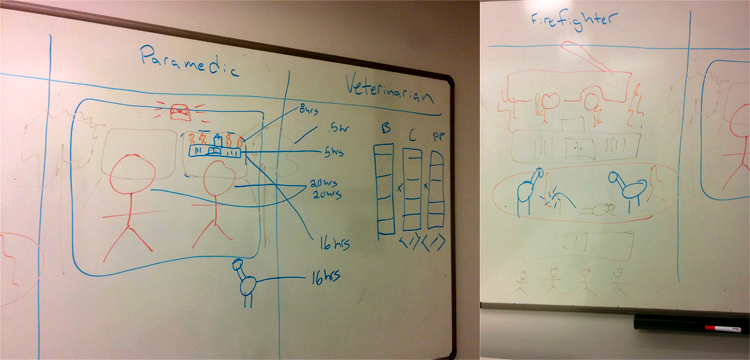 Paramedic
8hrs
.5hr
5hrs
20hrs
20hrs
16hrs
16hrs
Veterinarian
B C PP
x x
</> </>
Firefighter